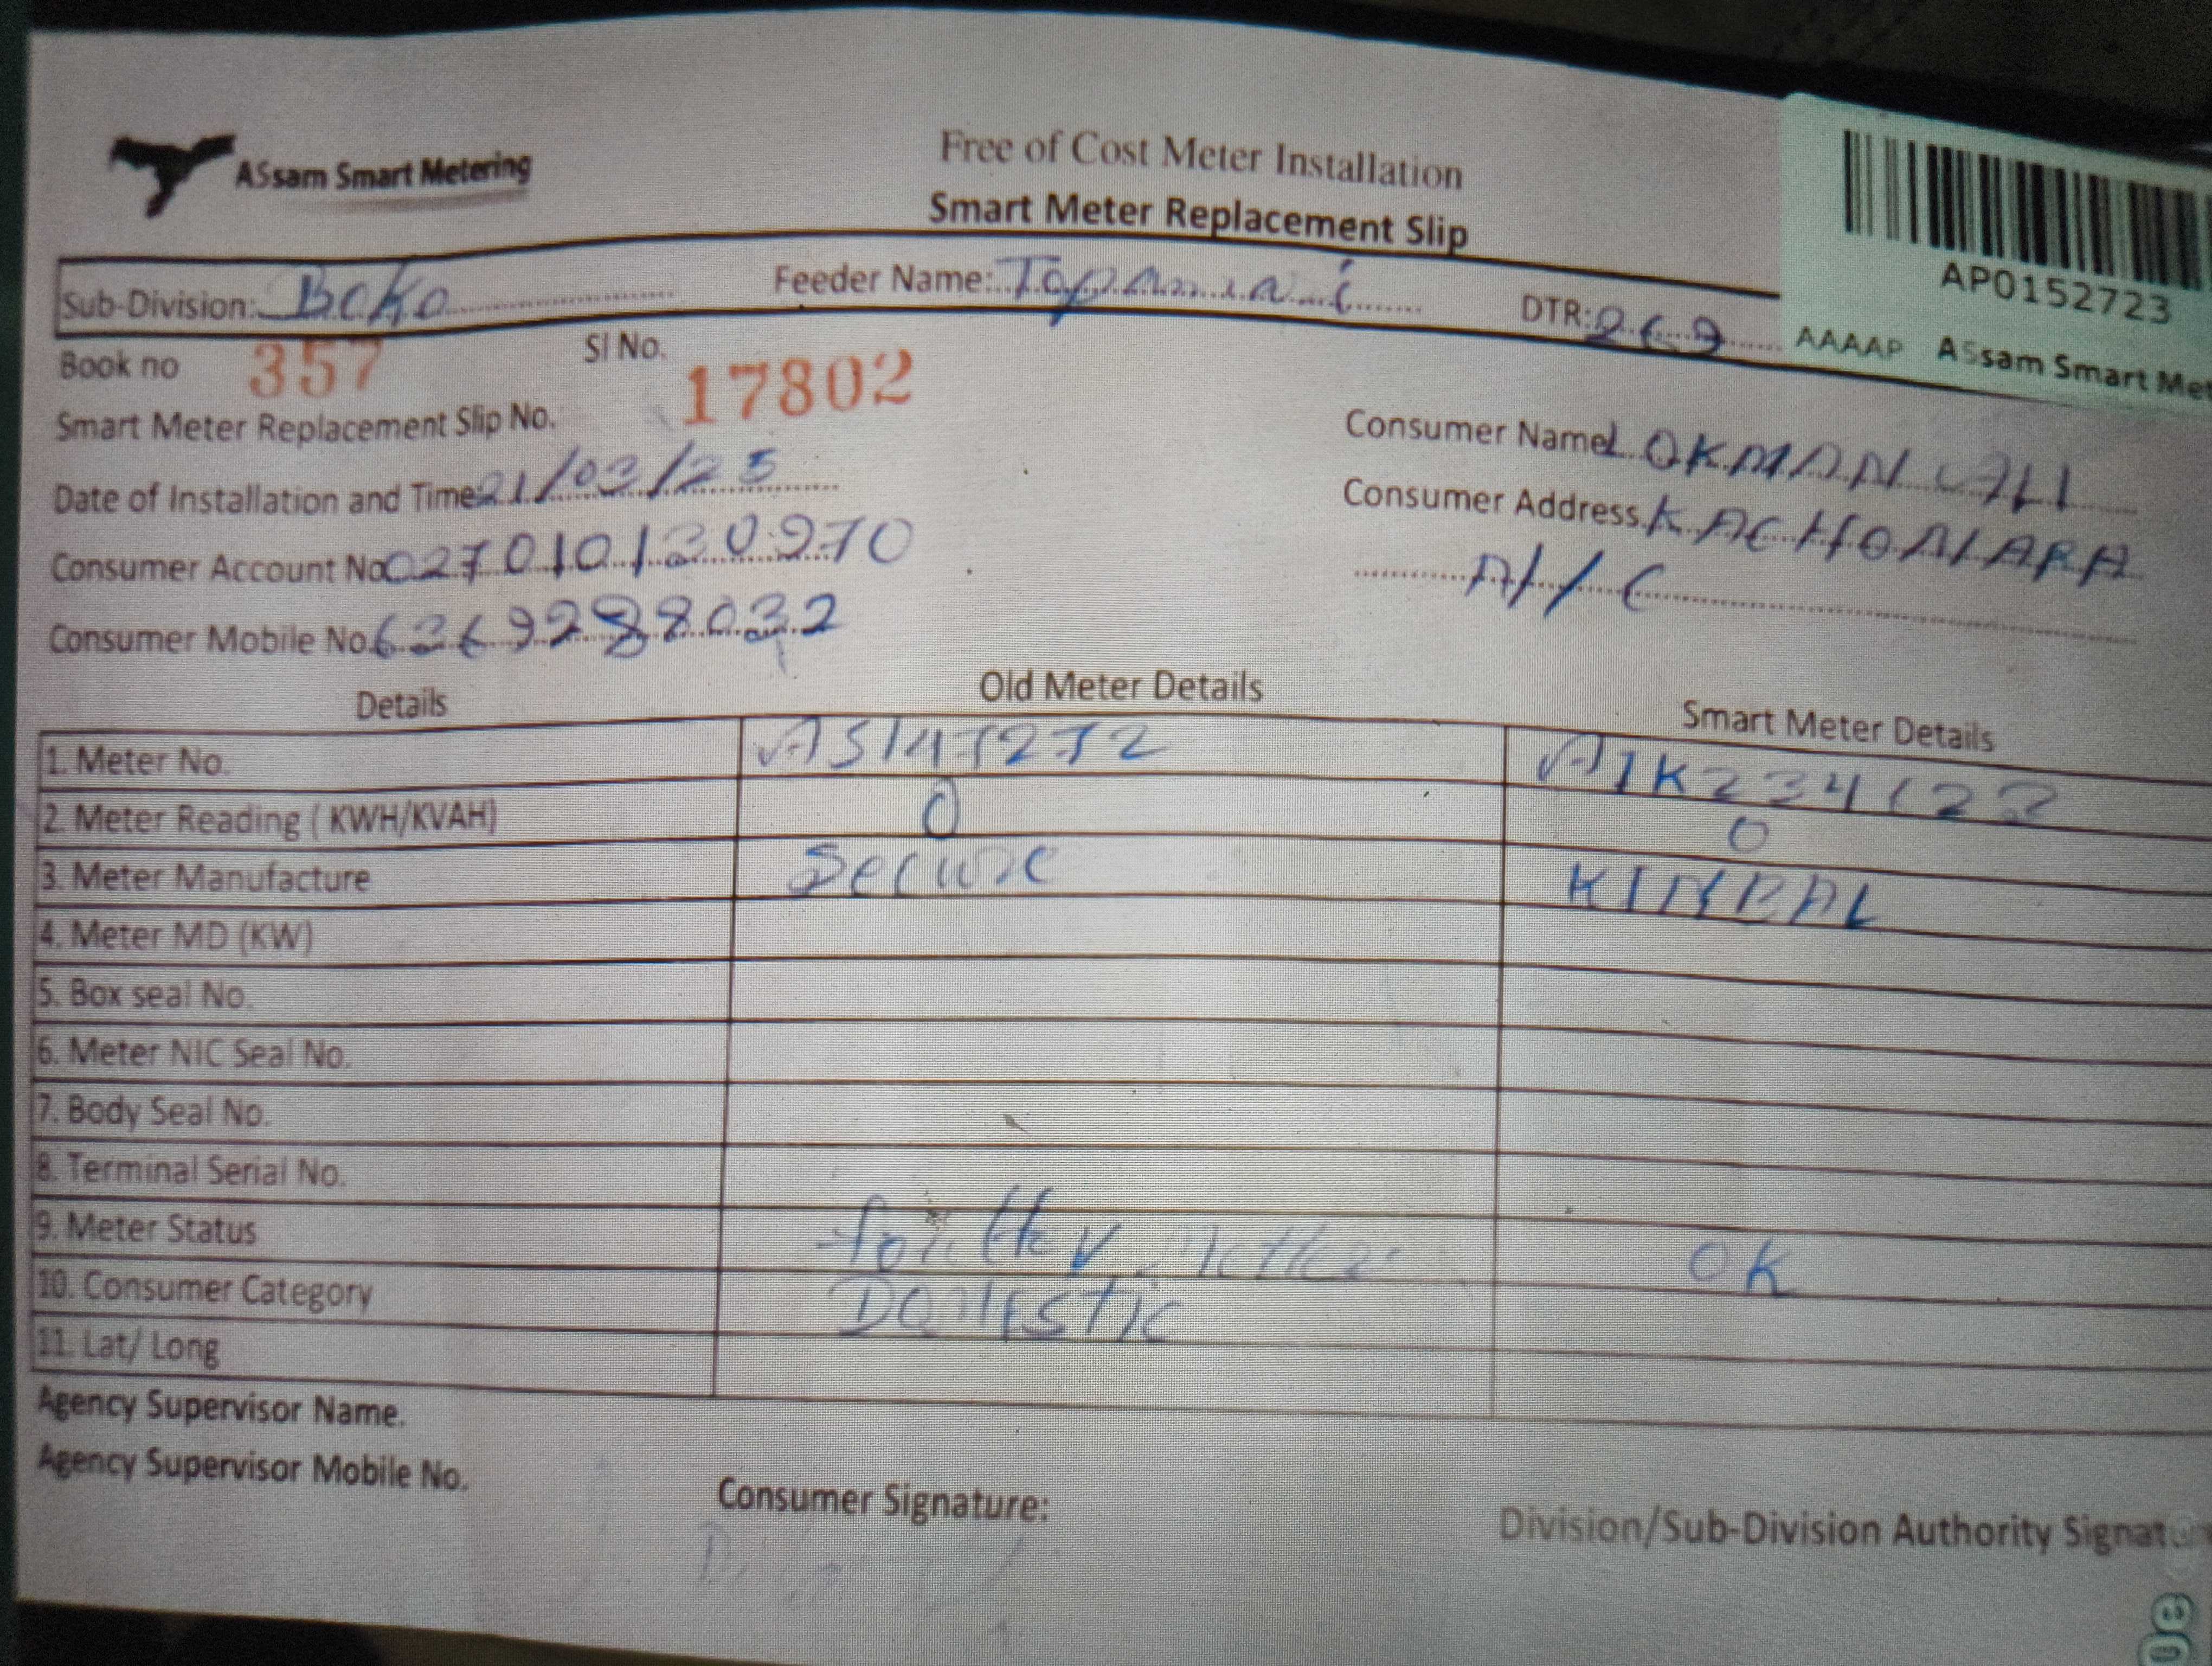 ASsam Smart Metering
Free of Cost Meter Installation
Smart Meter Replacement Slip
AP0152723
AAAAP ASsam Smart Met
Sub-Division: Boko Feeder Name: Topamari DTR: 269
Book no 357 Sl No. 17802
Smart Meter Replacement Slip No.
Date of Installation and Time 21/03/25
Consumer Account No 027010130970
Consumer Mobile No.
Consumer Name LOKMAN ALI
Consumer Address.
Details Old Meter Details Smart Meter Details
1. Meter No. AS147272
2. Meter Reading ( KWH/KVAH) 0 0
3. Meter Manufacture Secure KIMBAL
4. Meter MD (KW)
5. Box seal No.
6. Meter NIC Seal No.
7. Body Seal No.
8. Terminal Serial No.
9. Meter Status OK
10. Consumer Category DOMESTIC
11. Lat/ Long
Agency Supervisor Name.
Agency Supervisor Mobile No.
Consumer Signature:
Division/Sub-Division Authority Signatu